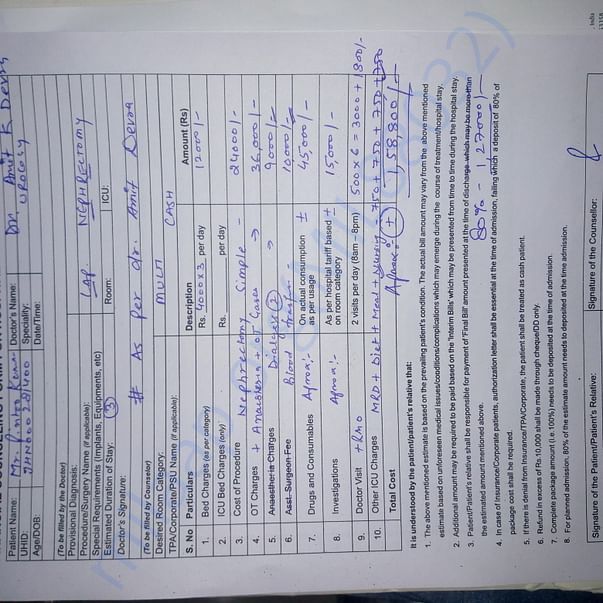 Patient Name: Mr. Pintoo Kumar Doctor's Name: Dr. Amit K Devra
UHID: Speciality: UROLOGY
Age/DOB: Date/Time:
(To be filled by the Doctor)
Provisional Diagnosis:
Procedure/Surgery Name (if applicable): LAP NEPHRECTOMY
Special Requirements (Implants, Equipments, etc)
Estimated Duration of Stay (3) Room: ICU:
Doctor's Signature: # As per dr. Amit Devra
(To be filled by Counselor)
Desired Room Category: MULTI
TPA/Corporate/PSU Name (if applicable): CASH
S. No Particulars Description Amount (Rs)
1. Bed Charges (as per category) Rs. 4000x3 per day 12000/-
2. ICU Bed Charges (only) Rs. per day
3. Cost of Procedure Nephrectomy Simple - 24000/-
4. OT Charges + Anaesthesia + OT Gases → 36,000/-
5. Anaesthesia Charges Dialysis (2) → 9000/-
6. Asst. Surgeon Fee Blood 10000/-
7. Drugs and Consumables Approx:- On actual consumption as per usage ± 45,000/-
8. Investigations Approx:- As per hospital tariff based on room category ± 15,000/-
9. Doctor Visit + RMO 2 visits per day (8am – 8pm) 500 x 6 = 3000 + 1800/-
10. Other ICU Charges MRD + Diet + Meal + 750 + 750 + 750 + 750
Total Cost Approx:- (±) 1,58,800/-
It is understood by the patient/patient's relative that:
1. The above mentioned estimate is based on the prevailing patient's condition. The actual bill amount may vary from the above mentioned
estimate based on unforeseen medical issues/conditions/complications which may emerge during the course of treatment/hospital stay.
2. Additional amount may be required to be paid based on the 'Interim Bills' which may be presented from time to time during the hospital stay.
3. Patient/Patient's relative shall be responsible for payment of 'Final Bill' amount presented at the time of discharge which may be more than
the estimated amount mentioned above. 80% - 1,27000/-
4. In case of Insurance/Corporate patients, authorization letter shall be essential at the time of admission, failing which a deposit of 80% of
package cost shall be required.
5. If there is denial from Insurance/TPA/Corporate, the patient shall be treated as cash patient.
6. Refund in excess of Rs.10,000 shall be made through cheque/DD only.
7. Complete package amount (i.e.100%) needs to be deposited at the time of admission.
8. For planned admission, 80% of the estimate amount needs to be deposited at the time admission.
Signature of the Patient/Patient's Relative: Signature of the Counsellor: